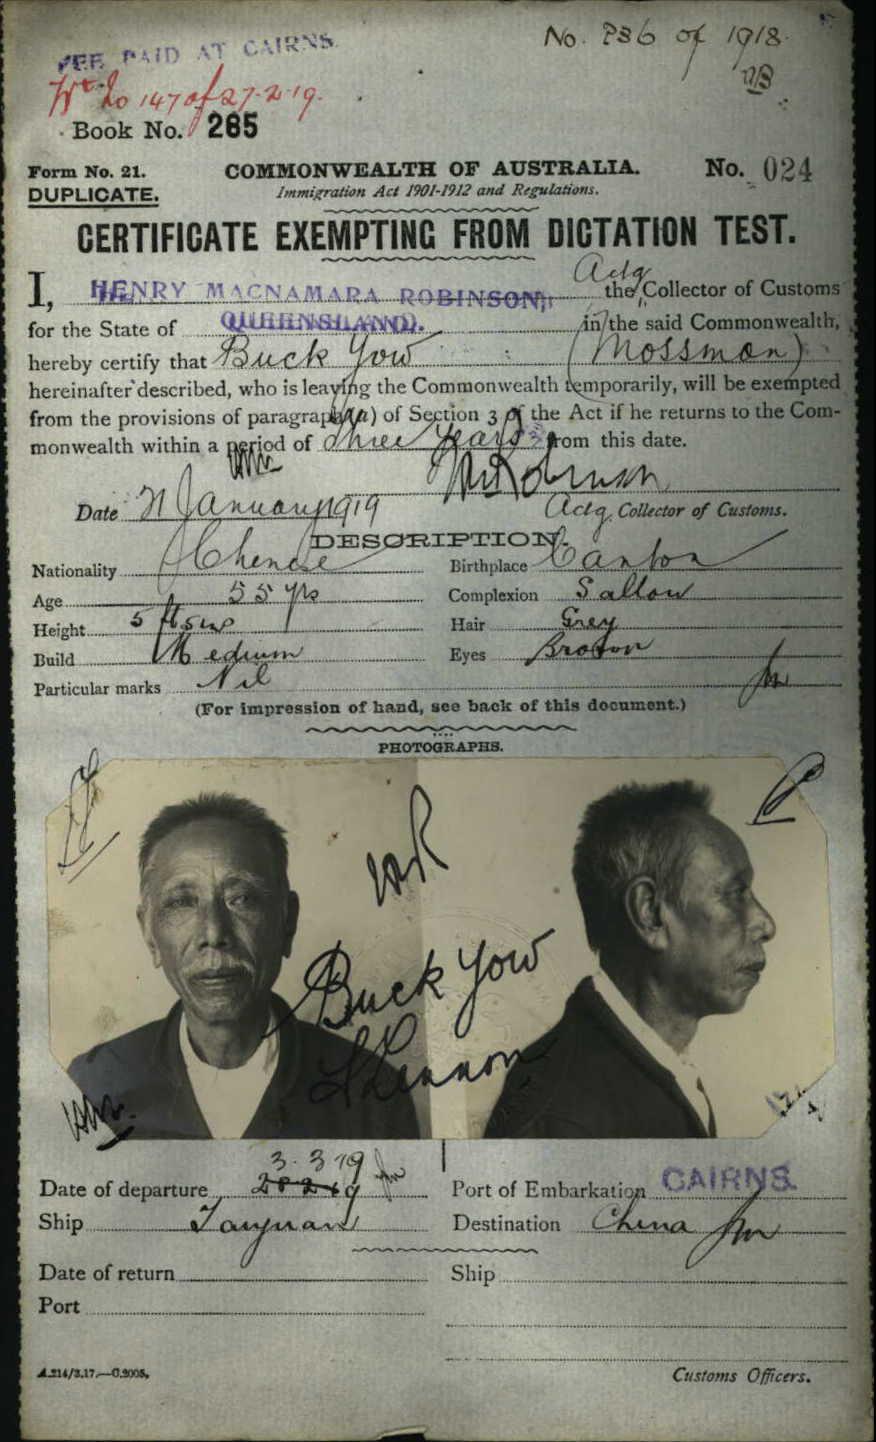 FEE PAID AT CAIRNS.
No. 786 of 1918.
Wt. to 147 of 27.2.19.
Book No. 265
Form No. 21.
COMMONWEALTH OF AUSTRALIA.
No. 024
DUPLICATE.
Immigration Act 1901-1912 and Regulations.
CERTIFICATE EXEMPTING FROM DICTATION TEST.
I, HENRY MACNAMARA ROBINSON, Actg the Collector of Customs
for the State of QUEENSLAND. in the said Commonwealth,
hereby certify that Buck Yow (Mossman)
hereinafter described, who is leaving the Commonwealth temporarily, will be exempted
from the provisions of paragraph (a) of Section 3 of the Act if he returns to the Com-
monwealth within a period of three years from this date.
HMRobinson
Date 21 January 1919 Actg. Collector of Customs.
DESCRIPTION.
Nationality Chinese Birthplace Canton
Age 55 yrs Complexion Sallow
Height 5 ft 5 ins Hair Grey
Build Medium Eyes Brown
Particular marks Nil
(For impression of hand, see back of this document.)
PHOTOGRAPHS.
Buck Yow
3.3.19
Date of departure 28.2.19 Port of Embarkation CAIRNS.
Ship Taiyuan Destination China
Date of return Ship
Port
A.214/3.17.—C.2005. Customs Officers.